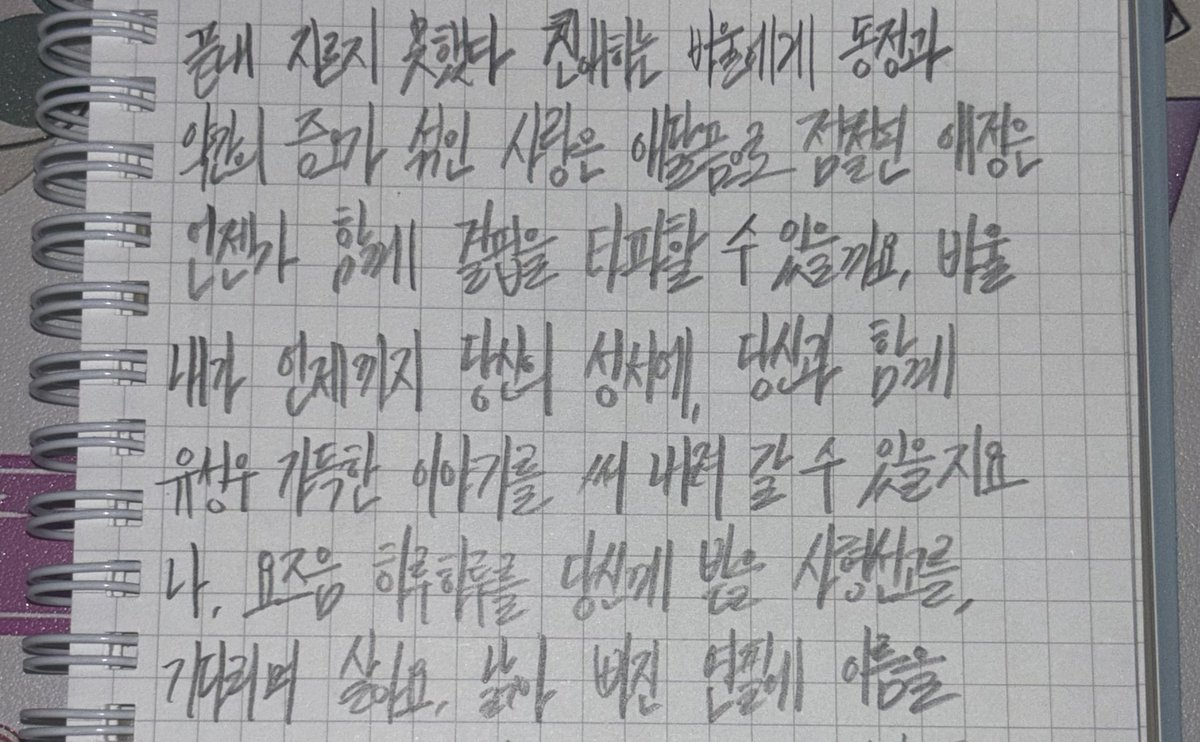 끝내 지르지 못했다 친애하는 바울에게 동정과
약간의 증오가 섞인 사랑은 애달픔으로 점철된 애정은
언젠가 함께 결핍을 타파할 수 있을까요, 바울
내가 언제까지 당신의 성서에, 당신과 함께
유성우 가득한 이야기를 써 내려 갈 수 있을지요
나, 요즈음 하루하루를 당신께 받은 사형선고를,
기다리며 살아요, 낡아 버진 연필에 아픔을